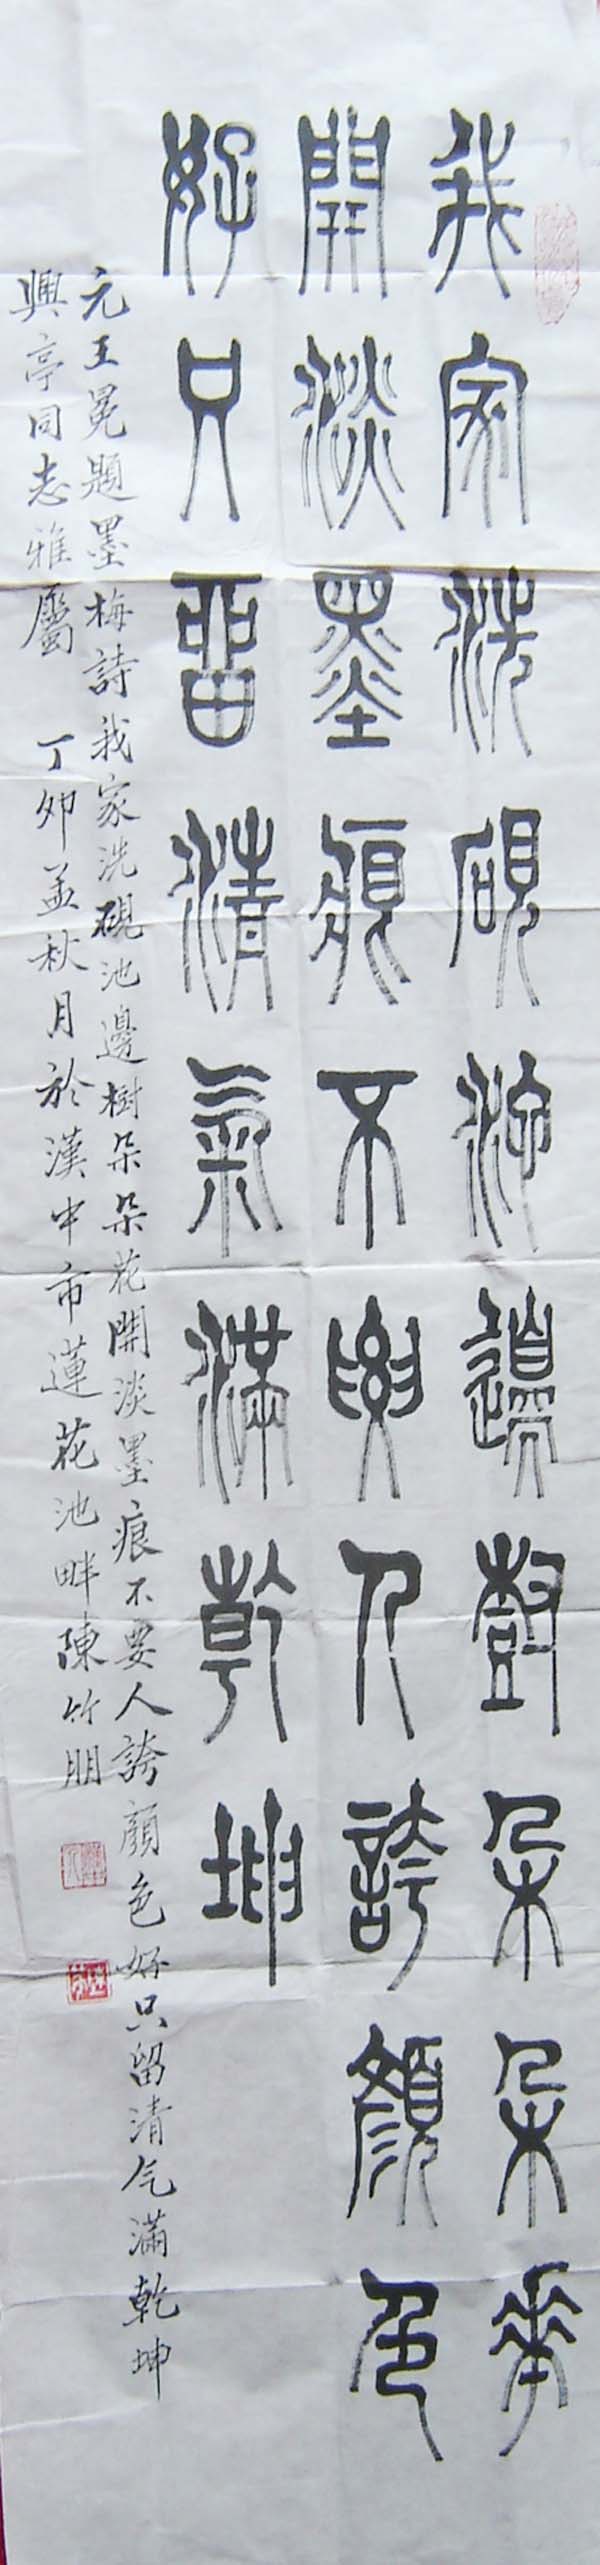 我家洗硯池邊樹朵朵花
開淡墨痕不要人誇顏色
好只留清氣滿乾坤
元王冕題墨梅詩我家洗硯池邊樹朵朵花開淡墨痕不要人誇顏色好只留清气滿乾坤
興亭同志雅屬 丁卯孟秋月於漢中市蓮花池畔陳竹朋